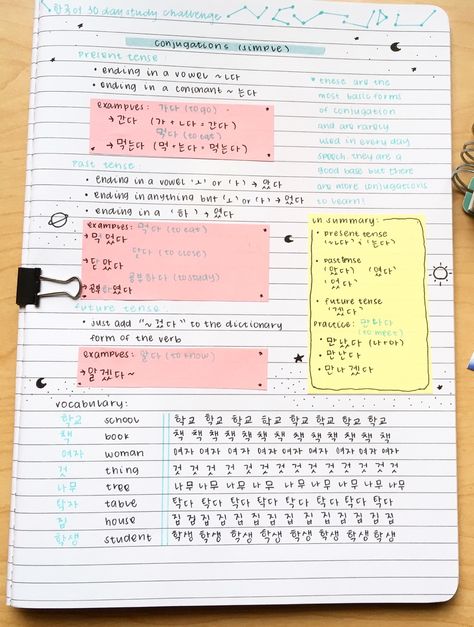 한국어 30 day study challenge
conjugations (simple)
present tense:
• ending in a vowel ~ㄴ다
• ending in a consonant ~는다
examples: 가다 (to go)
→ 간다 (가+ㄴ다=간다)
먹다 (to eat)
→ 먹는다 (먹+는다=먹는다)
* these are the
most basic forms
of conjugation
and are rarely
used in every day
speech. they are a
good base but there
are more conjugations
to learn!
past tense:
• ending in a vowel 'ㅗ' or 'ㅏ' → 았다
• ending in anything but 'ㅗ' or 'ㅏ' → 었다
• ending in a '하' →
examples: 먹다 (to eat)
→ 먹었다
닫다 (to close)
→ 닫았다
공부하다 (to study)
→
future tense:
• just add "~겠다" to the dictionary
form of the verb
examples: 알다 (to know)
→ 알겠다~
in summary:
• present tense
(~ㄴ다), (는다)
• past tense
(았다) (었다)
• future tense
(겠다)
practice: 만나다
(to meet)
• 만났다 (나+아)
• 만난다
• 만나겠다
vocabulary:
학교 school 학교 학교 학교 학교 학교 학교 학교 학교
책 book 책 책 책 책 책 책 책 책 책 책 책
여자 woman 여자 여자 여자 여자 여자 여자 여자 여자
것 thing 것 것 것 것 것 것 것 것 것 것 것
나무 tree 나무 나무 나무 나무 나무 나무 나무 나무
탁자 table 탁다 탁다 탁다 탁다 탁다 탁다 탁다 탁다
집 house 집 집 집 집 집 집 집 집 집 집 집
학생 student 학생 학생 학생 학생 학생 학생 학생 학생